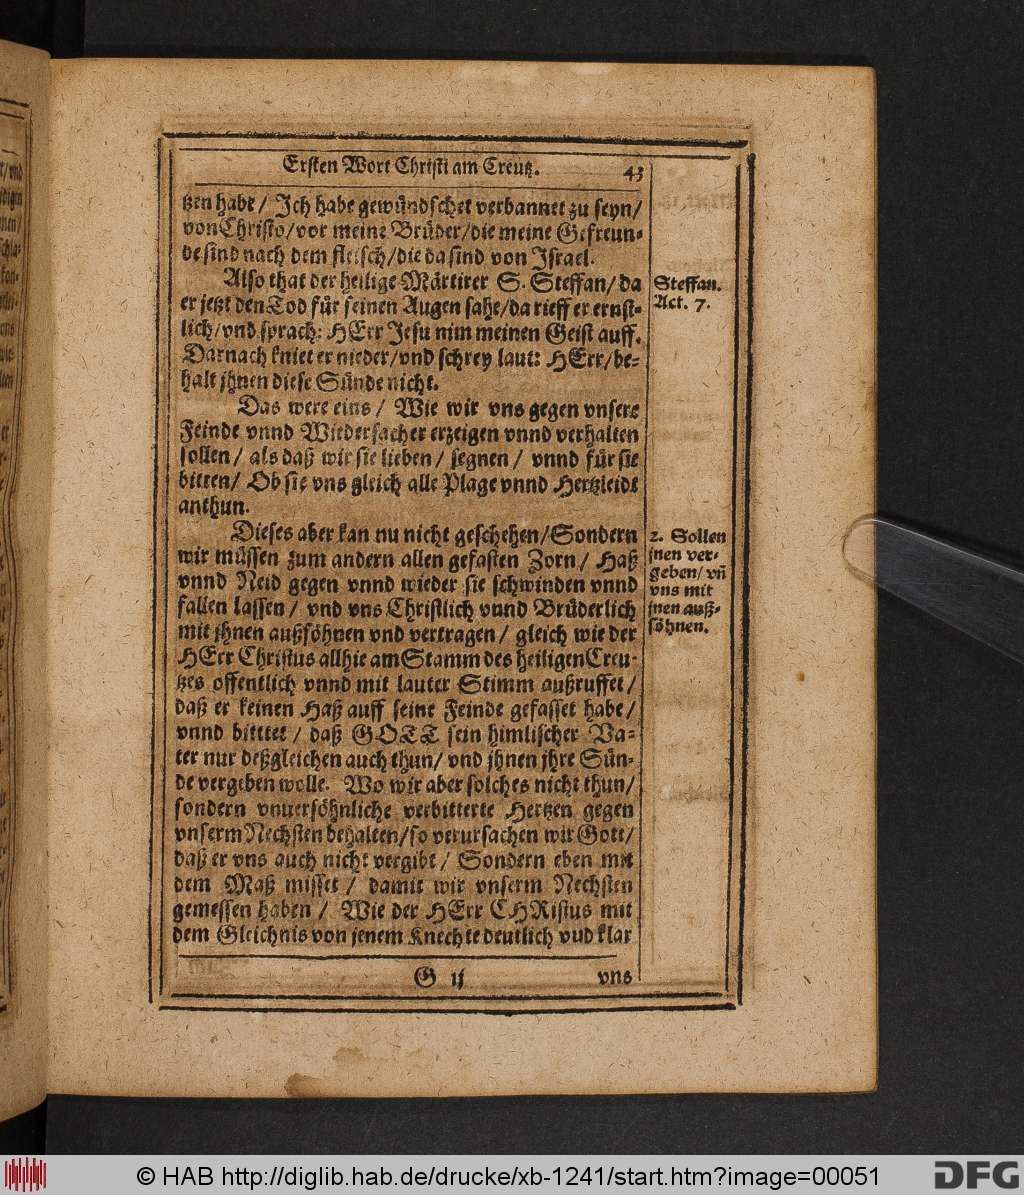 Ersten Wort Christi am Creutz. 43
tzen habe / Jch habe gewündschet verbannet zu seyn /
von Christo / vor meine Brüder / die meine Gefreun-
de sind nach dem fleisch / die da sind von Jsrael.
Also that der heilige Märtirer S. Steffan / da
er jetzt den Tod für seinen Augen sahe / da rieff er ernst-
lich / vnd sprach: HErr Jesu nim meinen Geist auff.
Darnach kniet er nieder / vnd schrey laut: HErr / be-
halt jhnen diese Sünde nicht.
Steffan.
Act. 7.
Das were eins / Wie wir vns gegen vnsere
Feinde vnnd Wiedersacher erzeigen vnnd verhalten
sollen / als daß wir sie lieben / segnen / vnnd für sie
bitten / Ob sie vns gleich alle Plage vnnd Hertzleidt
anthun.
Dieses aber kan nu nicht geschehen / Sondern
wir müssen zum andern allen gefasten Zorn / Haß
vnnd Neid gegen vnnd wieder sie schwinden vnnd
fallen lassen / vnd vns Christlich vnnd Brüderlich
mit jhnen außsöhnen vnd vertragen / gleich wie der
HErr Christus allhie am Stamm des heiligen Creu-
tzes offentlich vnnd mit lauter Stimm außruffet /
daß er keinen Haß auff seine Feinde gefasset habe /
vnnd bitttet / daß GOTT sein himlischer Va-
ter nur deßgleichen auch thun / vnd jhnen jhre Sün-
de vergeben wolle. Wo wir aber solches nicht thun /
sondern vnuersöhnliche verbitterte Hertzen gegen
vnserm Nechsten behalten / so verursachen wir Gott /
daß er vns auch nicht vergibt / Sondern eben mit
dem Maß misset / damit wir vnserm Nechsten
gemessen haben / Wie der HErr CHRistus mit
dem Gleichnis von jenem Knechte deutlich vud klar
2. Sollen
jnen ver-
geben / vñ
vns mit
jnen auß-
söhnen.
G ij vns
© HAB http://diglib.hab.de/drucke/xb-1241/start.htm?image=00051
DFG